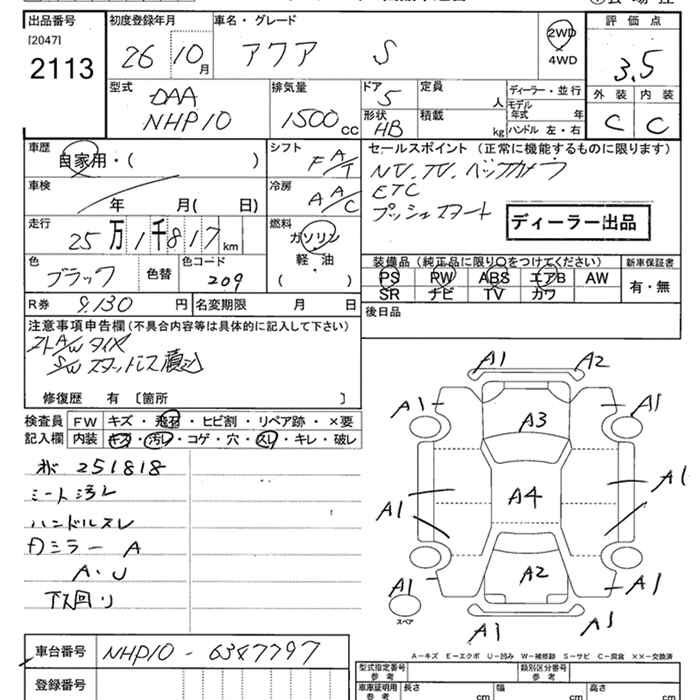 出品番号 初度登録年月 車名・グレード 評価点
[2047]
2113
26 10月 アクア S 2WD 4WD 3.5
外装 内装
C C
型式 DAA
NHP10
排気量 1500cc
ドア 5 定員 人 ディーラー・並行
形状 HB 積載 kg モデル年式 年
ハンドル 左・右
車歴 自家用・( )
シフト FA/T
セールスポイント(正常に機能するものに限ります)
NV.TV.バックカメラ
ETC
プッシュスタート
ディーラー出品
車検 年 月( 日)
冷房 A A/C
走行 25万1千817km
燃料 ガソリン 軽・油 ( )
色 ブラック 色替 色コード 209
装備品(純正品に限り○をつけてください) 新車保証書
PS PW ABS エアB AW 有・無
SR ナビ TV カワ
R券 9,130円 名変期限 月 日
後日品
注意事項申告欄(不具合内容等は具体的に記入して下さい)
A/Wタイヤ
S/Wスタッドレス積込
修復歴 有 〔箇所 〕
検査員記入欄 FW キズ・飛石・ヒビ割・リペア跡・×要
内装 キズ・汚レ・コゲ・穴・スレ・キレ・破レ
251818
シート汚レ
ハンドルスレ
ミラー A
A・U
下回り
A1 A2
A1 A3 A1
A1 A4 A1
A1 A2 A1
A1 A1
スペア
A-キズ E-エクボ U-凹み W-補修跡 S-サビ C-腐食 ××-交換済
車台番号 NHP10-6347797
登録番号
型式指定番号 参考 類別区分番号 参考
車庫証明用 参考 長さ cm 幅 cm 高さ cm